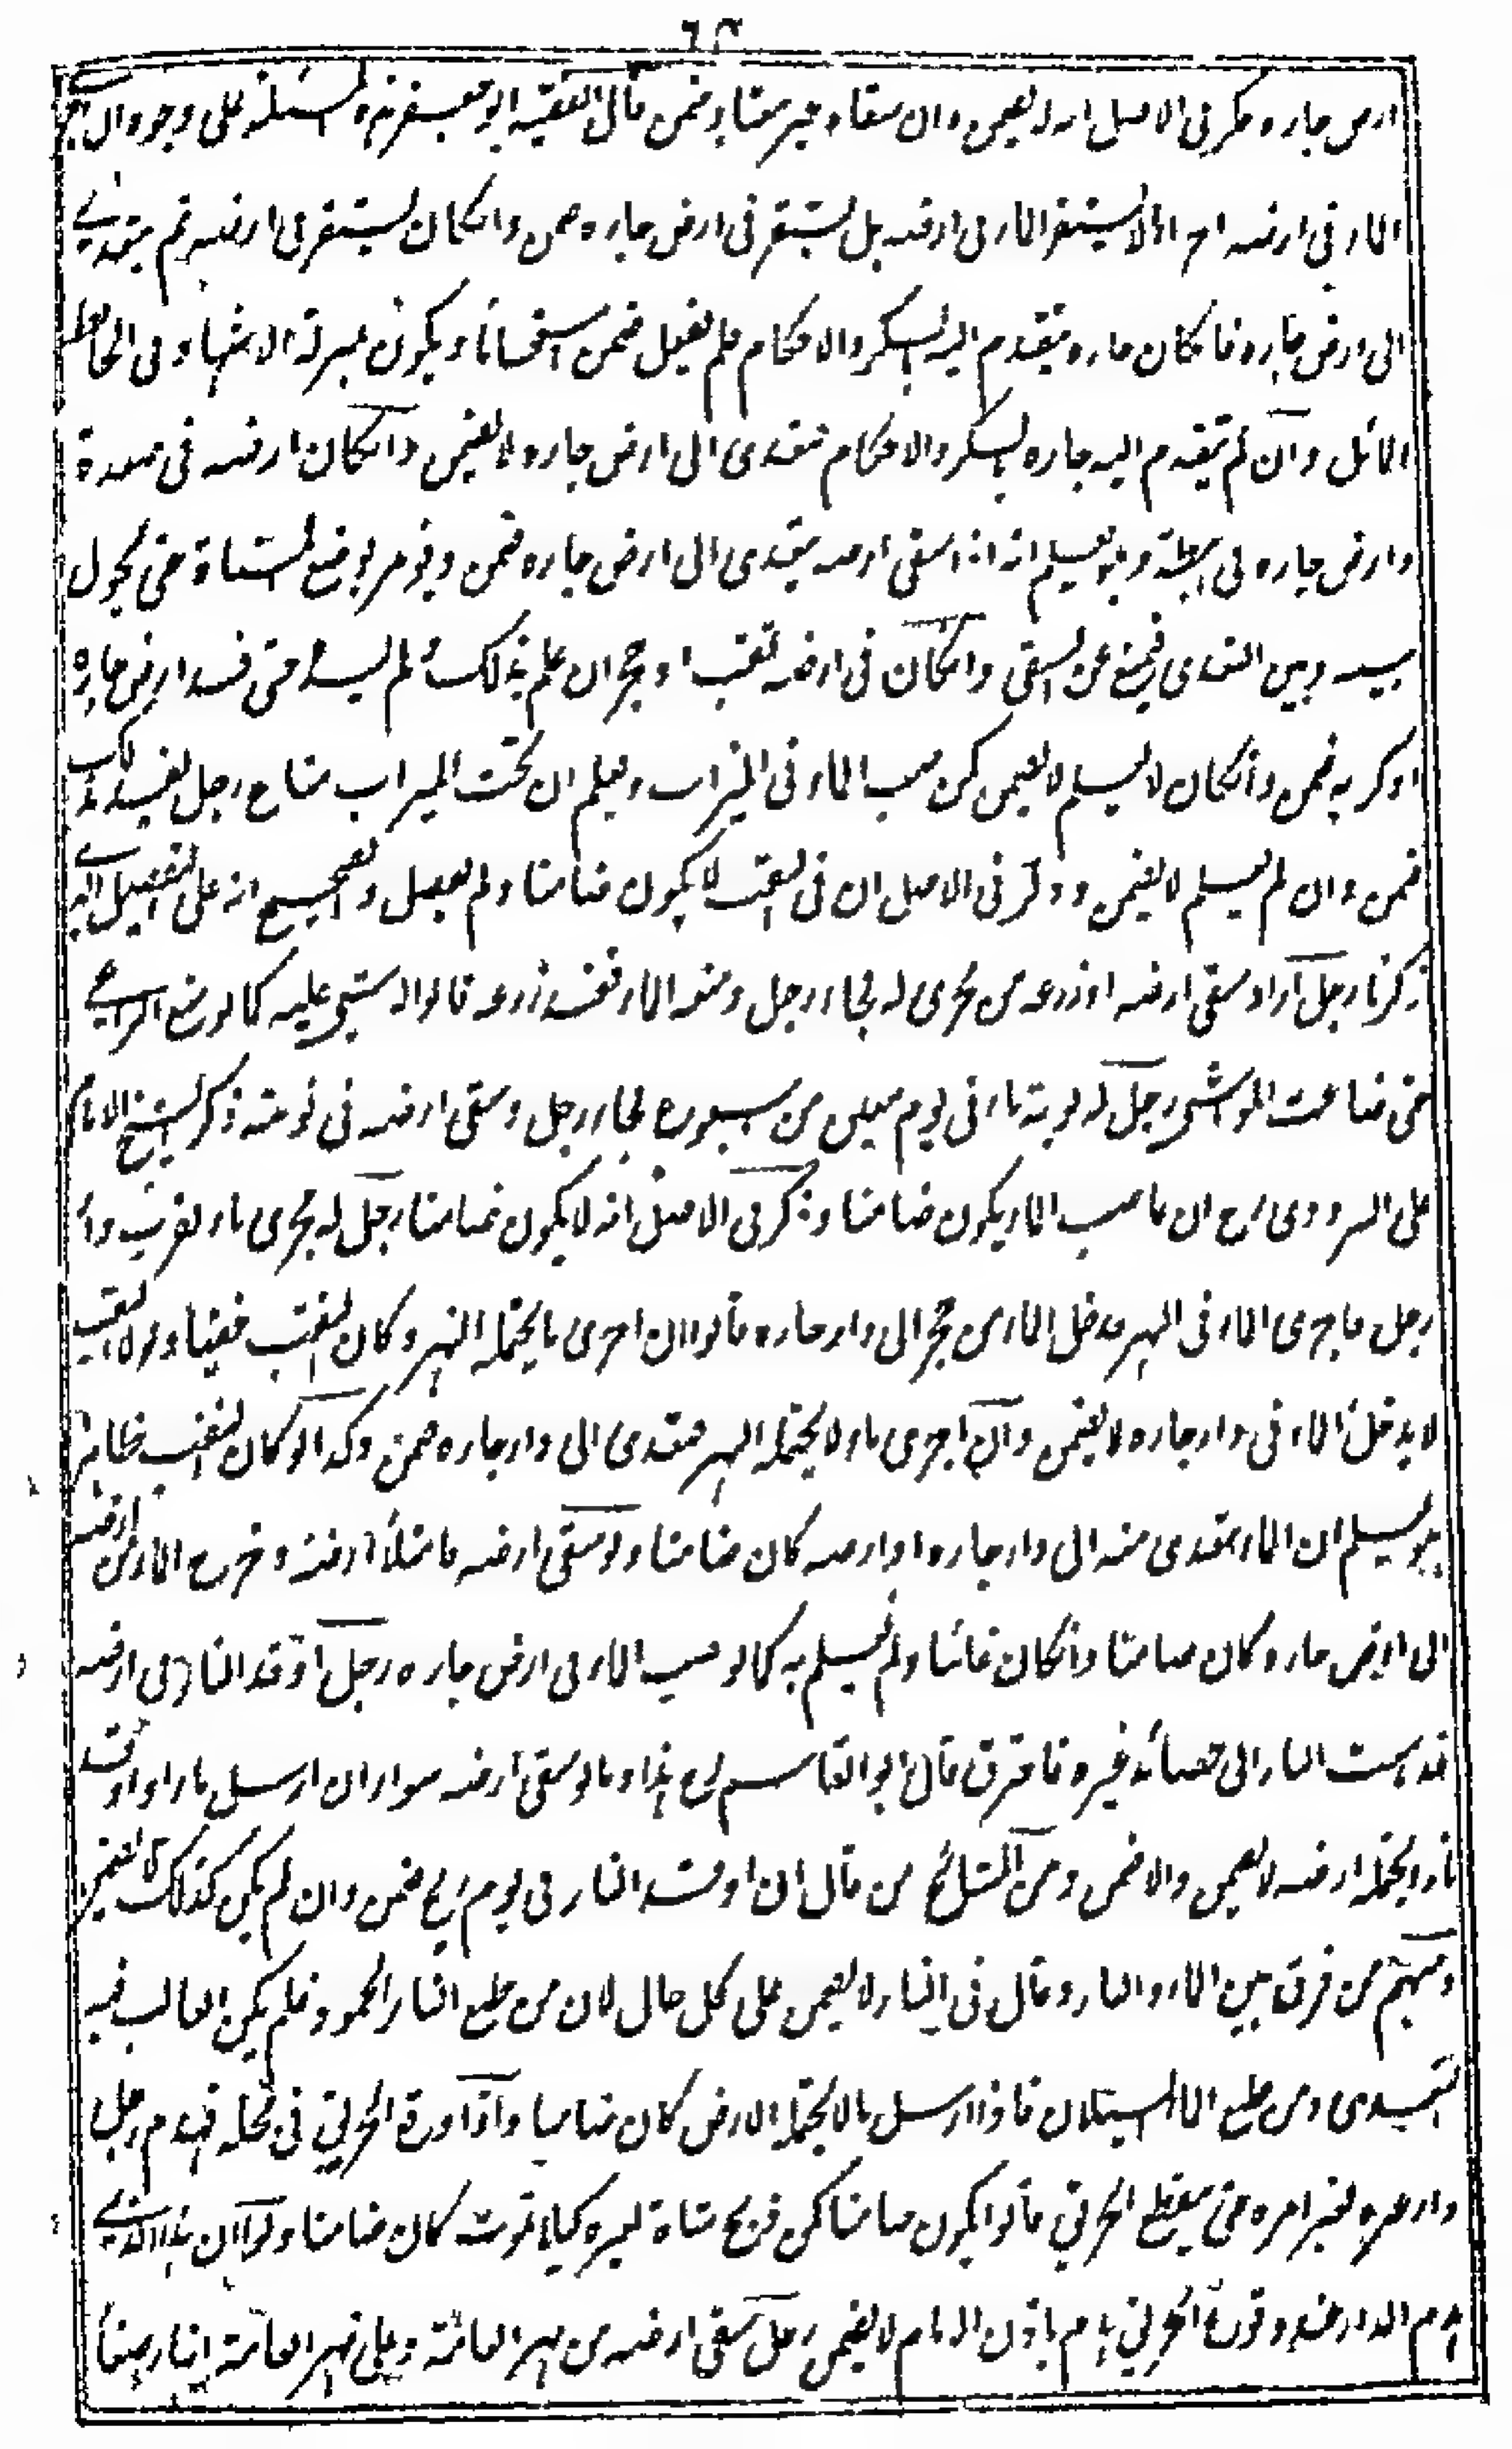 ٦٣
ارض جاره ذكر في الاصل انه لا يضمن وان سقاه غير معتاد ضمن قال الفقيه ابو جعفر هذه المسئلة على وجوه ان
الماء في ارضه اجراء لا يستقر الماء في ارضه بل يستقر في ارض جاره ضمن وانكان يستقر في ارضه ثم يتعدى
الى ارض جاره فانكان جاره تقدم اليه بالسكر والاحكام فلم يفعل ضمن استحسانا ويكون بمنزلة الاشهاد في الحائط
المائل وان لم يتقدم اليه جاره بالسكر والاحكام فتعدى الى ارض جاره لا يضمن وانكان ارضه في صعدة
وارض جاره في هبطة وهو يعلم انه اذا سقى ارضه يتعدى الى ارض جاره ضمن ويؤمر بوضع المسناة حتى يحول
بينه وبين التعدي فيمنع عن السقي وانكان في ارضه ثقب او جحر ان علم بذلك ولم يسده حتى فسد ارض جاره
او كربه ضمن وانكان لا يعلم لا يضمن كمن صب الماء في الميزاب ويعلم ان تحت الميزاب متاع رجل يفسد بذلك
ضمن وان لم يعلم لا يضمن وذكر في الاصل ان في الثقب لا يكون ضامنا ولم يفصل والصحيح انه على التفصيل الذي
ذكرنا رجل اراد سقي ارضه او زرعه من مجرى له فجاء رجل ومنعه الماء ففسد زرعه قالوا لا شيء عليه كما لو منع الراعي
حتى ضاعت المواشي رجل له نوبة ماء في يوم معين من سبوع فجاء رجل وسقى ارضه في نوبته ذكر الشيخ الامام
علي البزدوي رح ان غاصب الماء يكون ضامنا وذكر في الاصل انه لا يكون ضامنا رجل له مجرى ماء بقرب دار
رجل فاجرى الماء في النهر فدخل الماء من جحر الى دار جاره قالوا ان اجرى ما يحتمله النهر وكان الثقب خفيا ولولا الثقب
لا يدخل الماء في دار جاره لا يضمن وان اجرى ماء لا يحتمله النهر فتعدى الى دار جاره ضمن وكذا لو كان الثقب ظاهرا
وهو يعلم ان الماء يتعدى منه الى دار جاره او ارضه كان ضامنا ولو سقى ارضه فامتلأ ارضه وخرج الماء من ارضه
الى ارض جاره كان ضامنا وانكان غائبا ولم يعلم به كما لو صب الماء في ارض جاره رجل اوقد النار في ارضه
فذهبت النار الى حصائد غيره فاحترق قال ابو القاسم رح هذا وما لو سقى ارضه سواء ان ارسل ماء او اوقد
نارا يحتمله ارضه لا يضمن والا ضمن ومن المشائخ من قال ان اوقد النار في يوم ريح ضمن وان لم يكن كذلك لا يضمن
ومنهم من فرق بين الماء والنار وقال في النار لا يضمن على كل حال لان من طبع النار الخمود فلم يكن الغالب فيه
التعدي ومن طبع الماء السيلان فاذا ارسل ما لا يحتمله الارض كان ضامنا واذا وقع الحريق في محلة فهدم رجل
دار غيره بغير امره حتى ينقطع الحريق قالوا يكون ضامنا كمن ذبح شاة لغيره كيلا تموت كان ضامنا ولو ان هذا الذي
هدم الدار عند وقوع الحريق هدم باذن الامام لا يضمن رجل سقى ارضه من نهر العامة وعلى نهر العامة انهار صغار